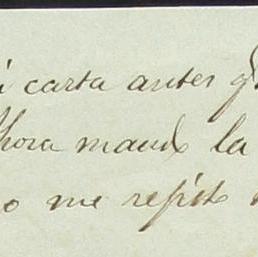 i carta antes q
hora mando la
o me repito